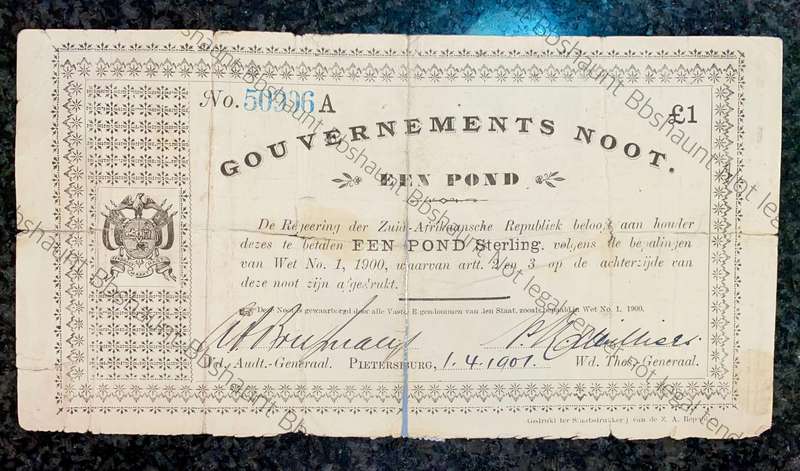 No. 50996 A
£1
GOUVERNEMENTS NOOT.
EEN POND
De Regeering der Zuid-Afrikaansche Republiek belooft aan houder
dezes te betalen EEN POND Sterling. volgens de bepalingen
van Wet No. 1, 1900, waarvan artt. 2 en 3 op de achterzijde van
deze noot zijn afgedrukt.
Deze Noot is gewaarborgd door alle Vaste Eigendommen van den Staat, zooals bepaald in Wet No. 1, 1900.
Wd. Audt.-Generaal. PIETERSBURG, 1.4.1901. Wd. Thes.-Generaal.
Gedrukt ter Staatsdrukkerij van de Z. A. Republiek
Bbshaunt Not legal tender